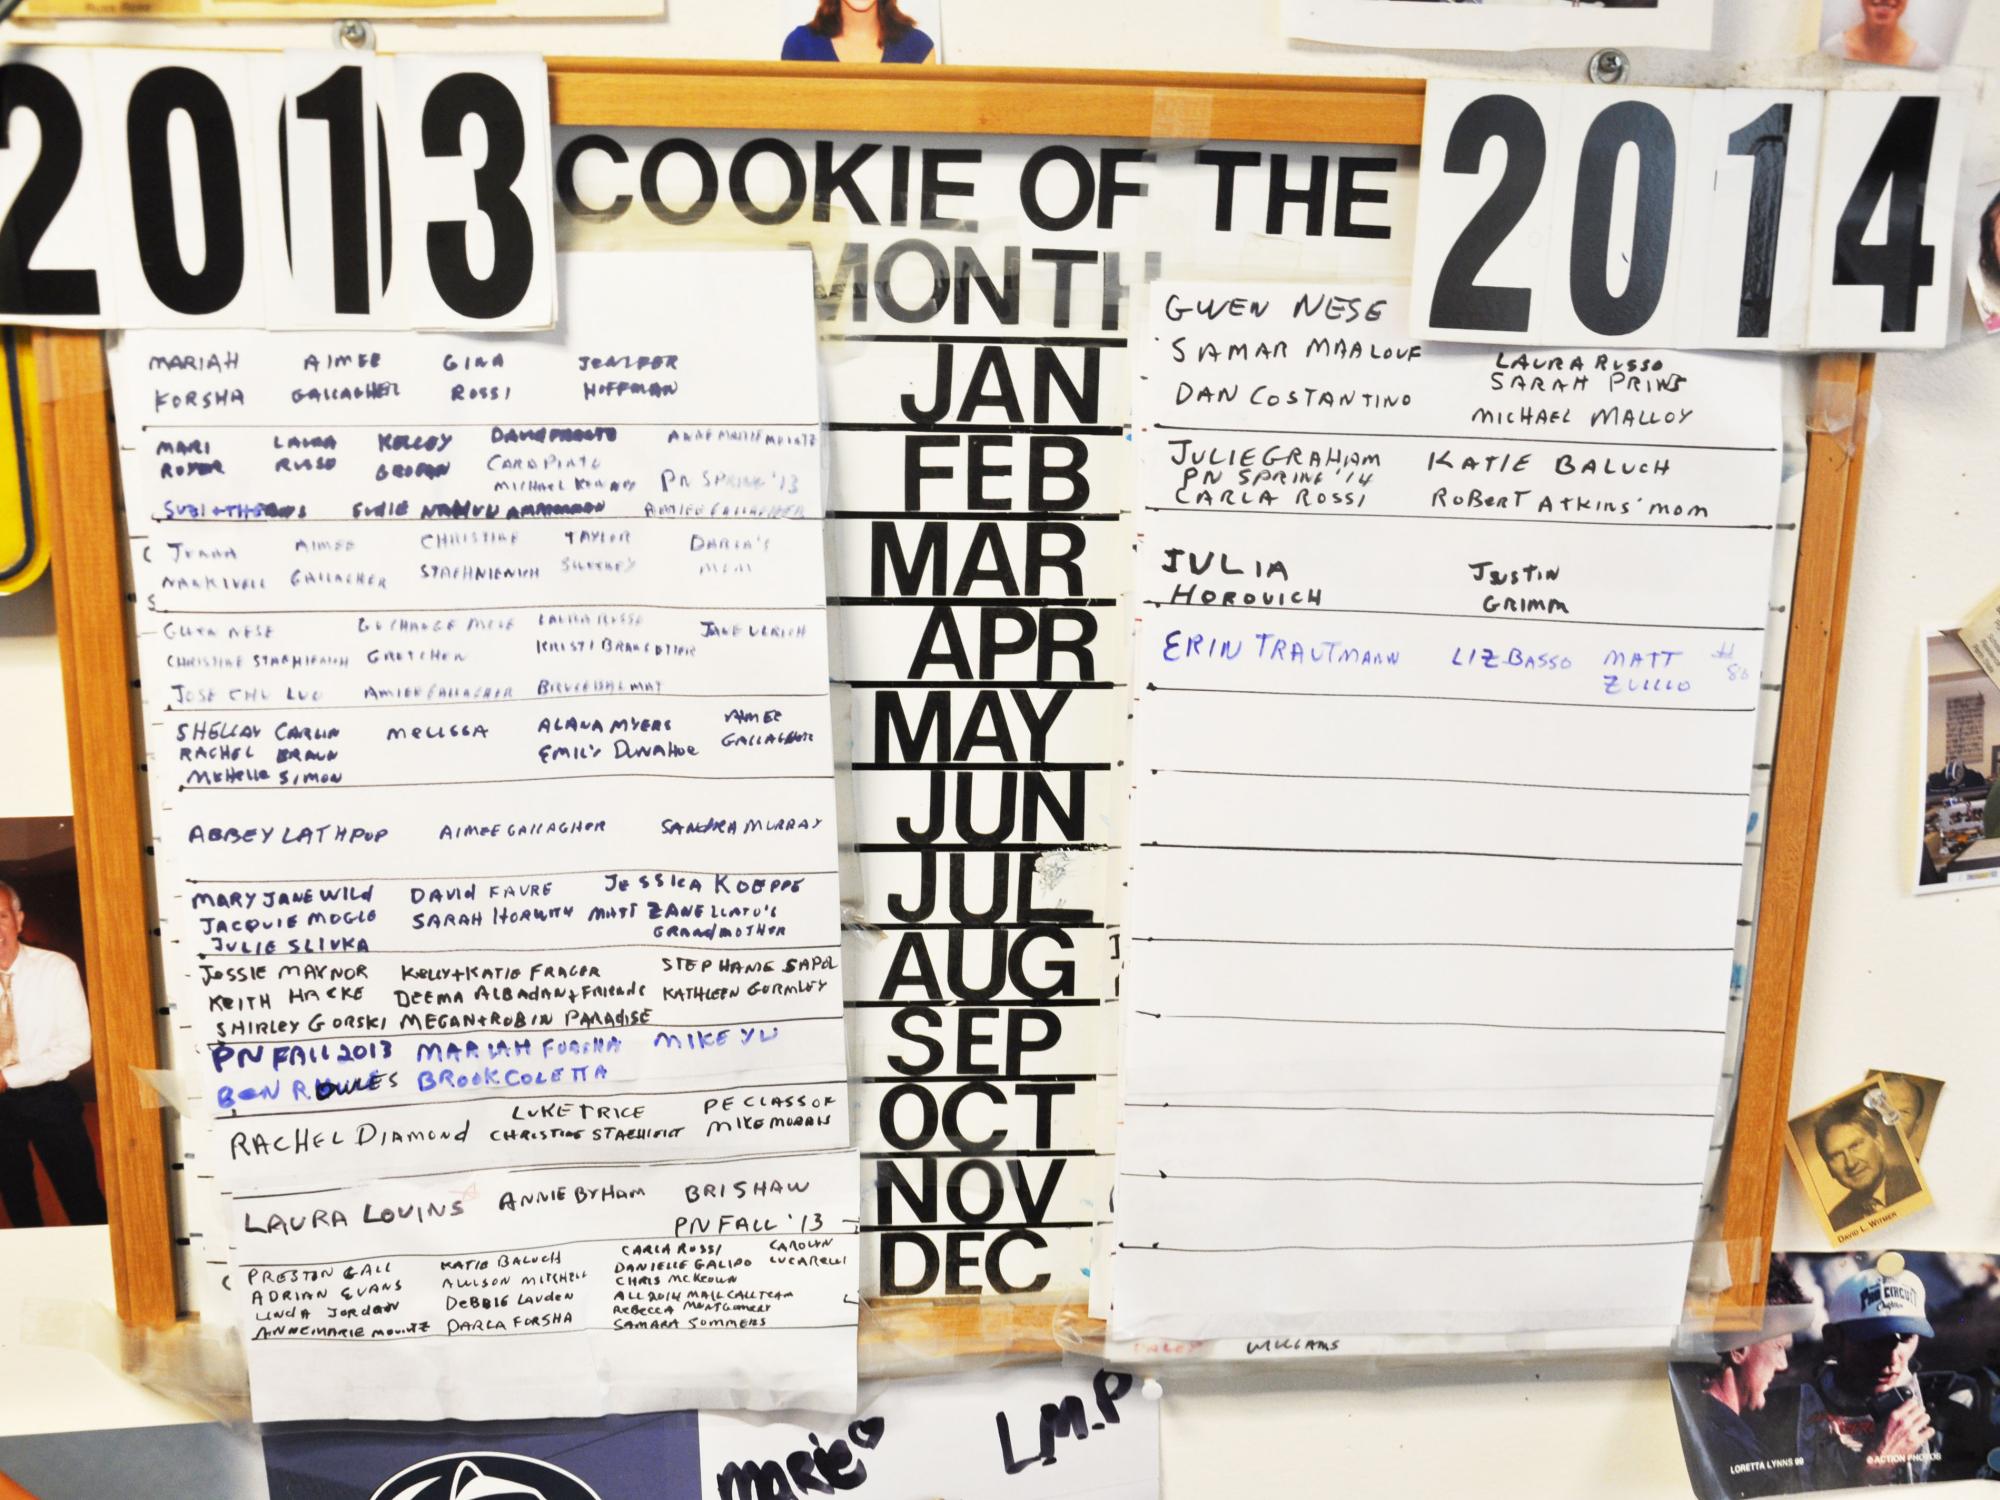 2013
COOKIE OF THE
MONTH
2014
MARIAH AIMEE GINA JENIFER
FORSHA GALLAGHER ROSSI HOFFMAN
MARI LAURA KELLEY
ROYER RUSSO
CARA
MICHAEL
PN SPRING '13
SUZI + THE
SUZIE
AIMEE GALLAGHER
JENNA AIMEE CHRISTINE TAYLOR DARLA'S
NANKIVELL GALLAGHER STAEHNIENICH SWEENEY MOM
GWEN NESE LAURA RUSSO JANE ULRICH
CHRISTINE GRETCHEN KRISTI
JOSE CHU LUO AIMEE GALLAGHER
SHELLAY CARLIN MELISSA ALANA MYERS AIMEE
RACHEL BRAUN EMILY DUNAHOE GALLAGHER
MICHELLE SIMON
ABBEY LATHROP AIMEE GALLAGHER SANDRA MURRAY
MARY JANE WILD DAVID FAVRE JESSICA KOEPPE
JACQUIE MOGLE SARAH HORWITH MATT ZANELLATO'S
JULIE SLIVKA GRANDMOTHER
JESSIE MAYNOR KELLY + KATIE FRAGER STEPHANIE SAPOL
KEITH HACKE DEEMA ALBADAN + FRIENDS KATHLEEN GORMLEY
SHIRLEY GORSKI MEGAN + ROBIN PARADISE
PN FALL 2013 MARIAH FORSHA MIKE YU
BEN ROWLES BROOK COLETTA
RACHEL DIAMOND LUKE TRICE PE CLASS OF
CHRISTINE MIKE MORRIS
LAURA LOVINS ANNIE BYHAM BRI SHAW
PN FALL '13
PRESTON GALL KATIE BALUCH CARLA ROSSI CAROLYN
ADRIAN EVANS ALLISON MITCHELL DANIELLE GALIDO LUCARELLI
LINDA JORDAN DEBBIE LAUDEN CHRIS MCKEOWN
ANNEMARIE MOUNTZ DARLA FORSHA ALL 2014 MAIL CALL TEAM
REBECCA MONTGOMERY
SAMARA SOMMERS
JAN
FEB
MAR
APR
MAY
JUN
JUL
AUG
SEP
OCT
NOV
DEC
GWEN NESE
SAMAR MAALOUF LAURA RUSSO
SARAH PRINS
DAN COSTANTINO MICHAEL MALLOY
JULIE GRAHAM KATIE BALUCH
PN SPRING '14
CARLA ROSSI ROBERT ATKINS' MOM
JULIA JUSTIN
HOROVICH GRIMM
ERIN TRAUTMANN LIZ BASSO MATT #
ZULLO 80
WILLIAMS
MARIE
L.M.P
DAVID L. WITMER
LORETTA LYNNS 99
© ACTION PHOTOS